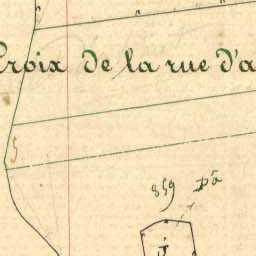 Croix de la rue d'a
5
859 pa